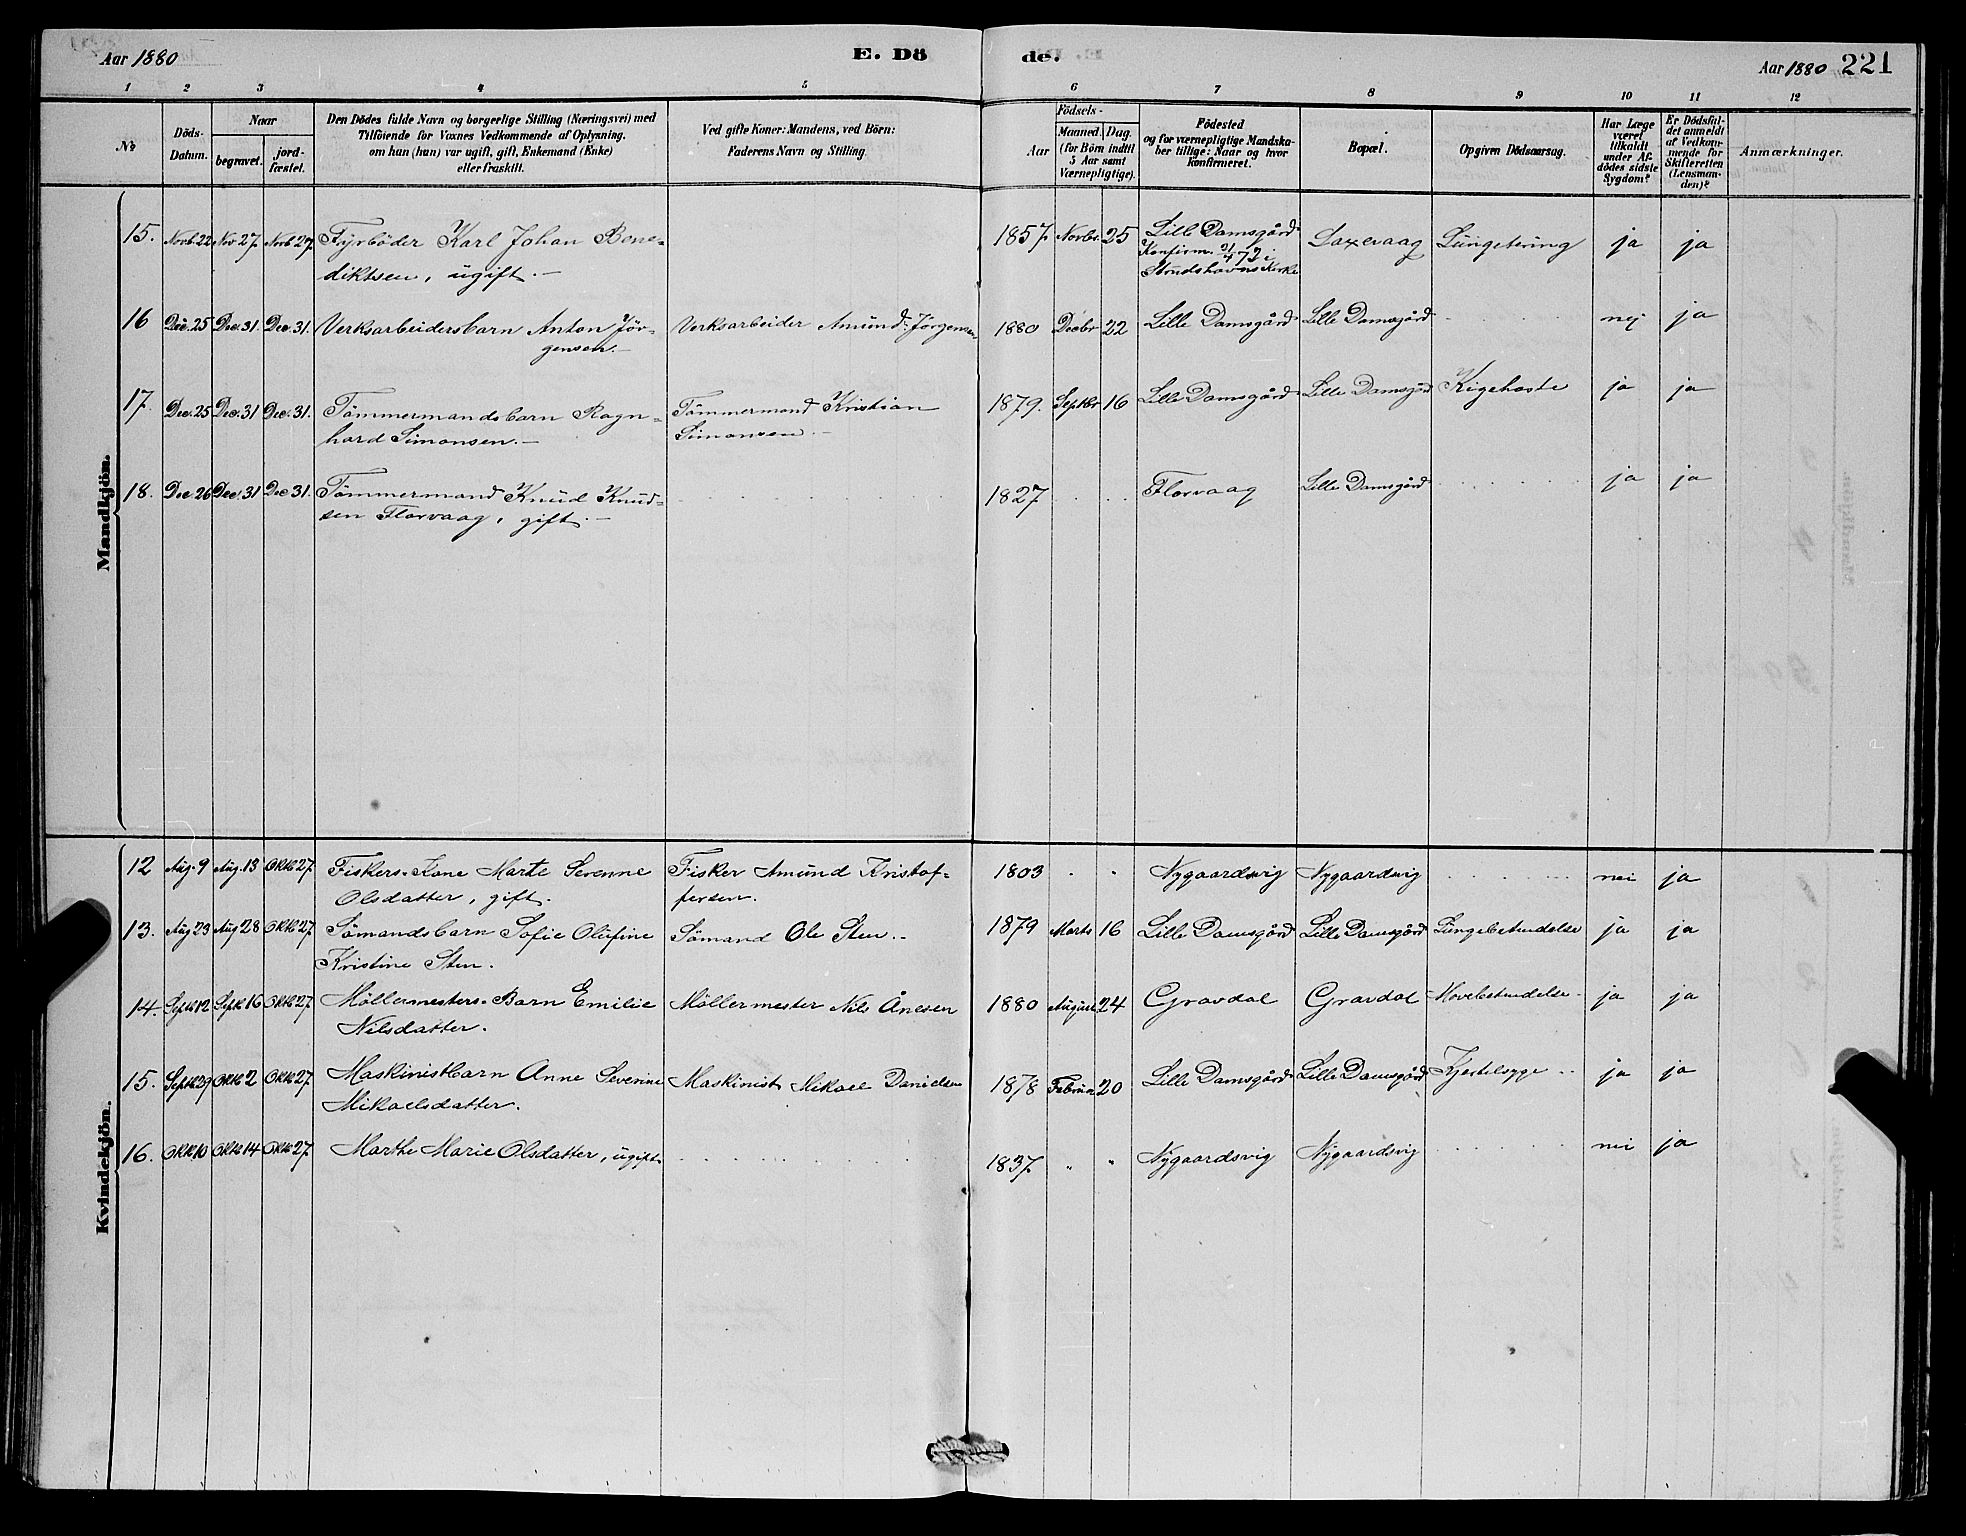 Aar 1880
E. Dö
de.
Aar 1880
221
1 2 3 4 5 6 7 8 9 10 11 12
No
Döds-
Datum.
Naar
begravet.
jord-
fæstet.
Den Dödes fulde Navn og borgerlige Stilling (Næringsvei) med
Tilföiende for Voxnes Vedkommende af Oplysning,
om han (hun) var ugift, gift, Enkemand (Enke)
eller fraskilt.
Ved gifte Koner: Mandens, ved Börn:
Faderens Navn og Stilling
Födsels-
Aar
Maaned. Dag.
(for Börn indtil
5 Aar samt
Værnepligtige).
Födested
og for værnepligtige Mandska-
ber tillige: Naar og hvor
konfirmeret.
Bopæl.
Opgiven Dödsaarsag.
Har Læge
været
tilkaldt
under Af-
dödes sidste
Sygdom?
Er Dödsfal-
det anmeldt
af Vedkom-
mende for
Skifteretten
(Lensman-
den)?
Anmærkninger.
Mandkjön.
15. Novb. 22 Nov 27. Novb 27. Fyrböder Karl Johan Bene- 1857. Novbr. 25 Lille Damsgård Laxevaag Lungetæring ja ja
diktsen, ugift.— Konfirm. i
Strudshavns Kirke
16 Dec. 25 Dec. 31. Dec. 31. Verksarbeidersbarn Anton Jör- Verksarbeider Amund Jörgensen 1880 Decbr 22 Lille Damsgård Lille Damsgård nej ja
gensen.—
17. Dec. 25 Dec. 31 Dec. 31. Tömmermandsbarn Ragn- Tömmermand Kristian 1879. Septbr 16 Lille Damsgård Lille Damsgård Kigehoste ja ja
hard Simonsen.— Simonsen.—
18. Dec 26 Dec. 31 Dec 31. Tömmermand Knud Knud- 1827 Florvaag Lille Damsgård ja ja
sen Florvaag, gift.—
Kvindekjön.
12 Aug. 9 Aug. 13 Oktb 27. Fiskers-Kone Marte Severine Fisker Amund Kristof- 1803 " " Nygaardsvig Nygaardsvig nei ja
Olsdatter, gift. fersen.
13. Aug 23 Aug 28 Oktb 27 Sömandsbarn Sofie Olufine Sömand Ole Sten.. 1879 Marts 16 Lille Damsgård Lille Damsgård Lungebetændelse ja ja
Kristine Sten.
14. Septb 12 Septb 16 Oktb 27. Möllermesters-Barn Emilie Möllermester Nils Ånesen 1880 August 24 Gravdal Gravdal ja ja
Nilsdatter.
15. Septb 29 Oktb 2 Oktb 27. Maskinistbarn Anne Severine Maskinist Mikael Danielsen 1878 Februar 20 Lille Damsgård Lille Damsgård Kjertelsyge ja ja
Mikaelsdatter.
16. Oktb 10 Oktb 14 Oktb 27. Marthe Marie Olsdatter, ugift 1837. " " Nygaardsvig Nygaardsvig nei ja